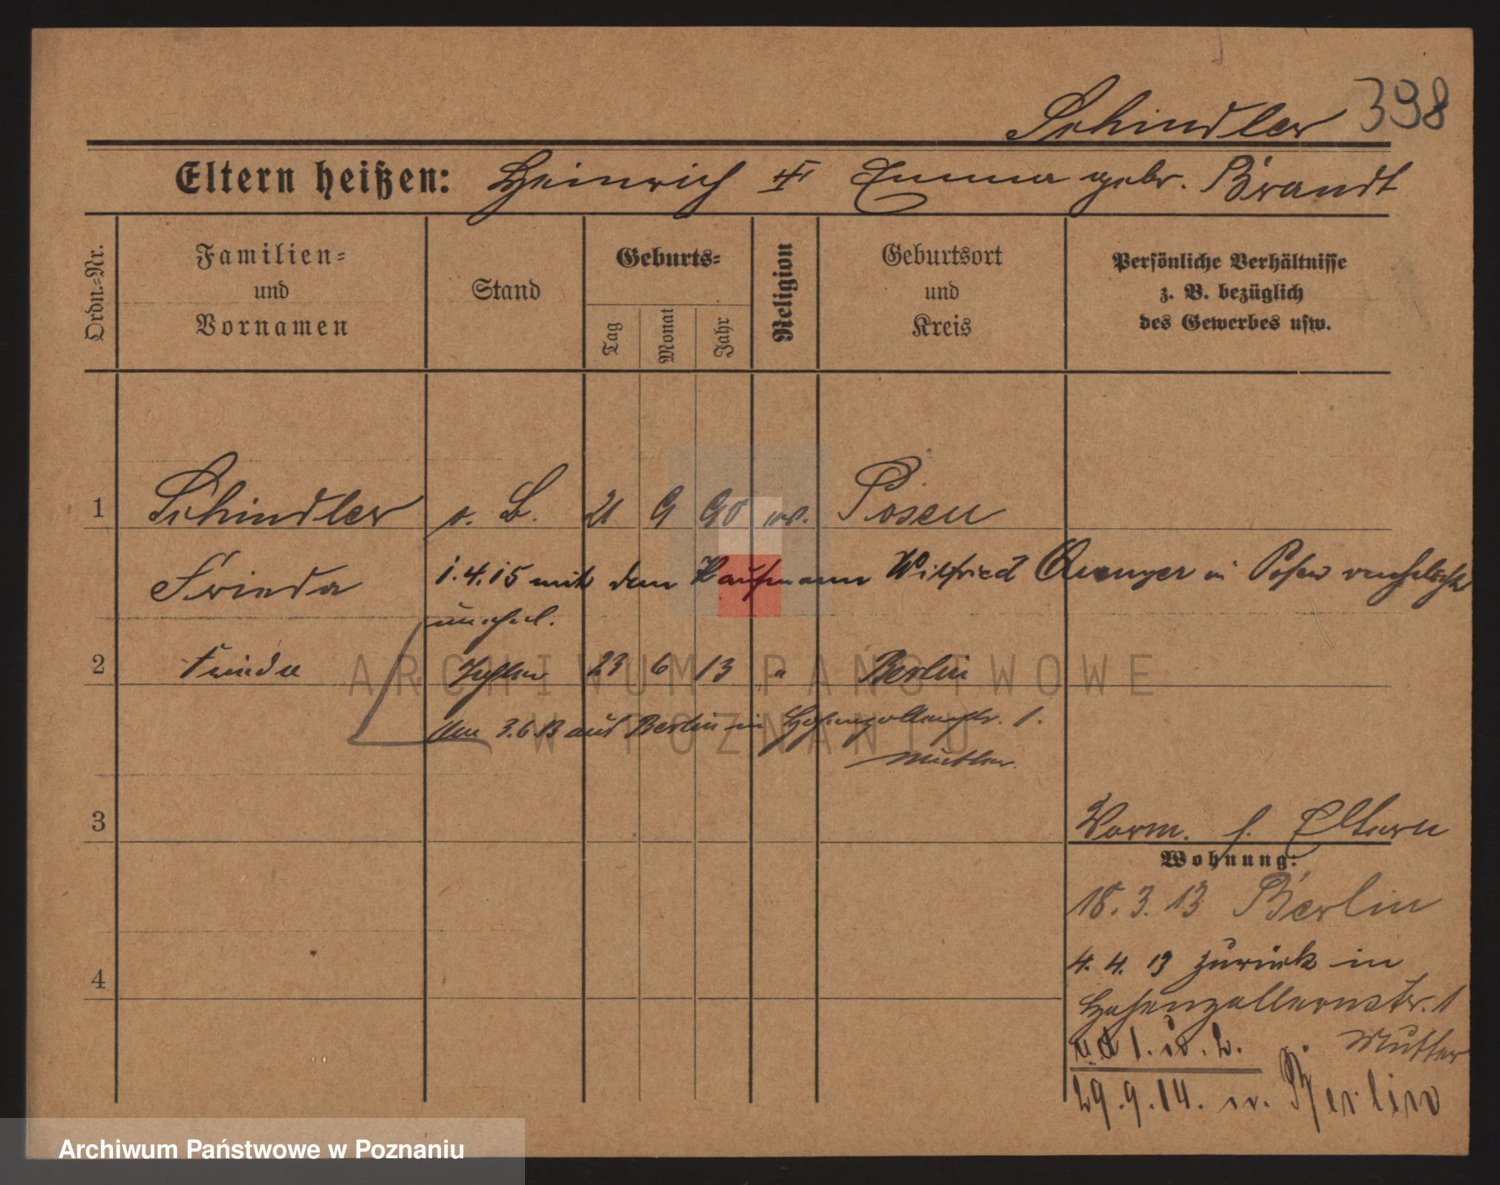 Schindler 398
Eltern heißen: Heinrich Emma gebr. Brandt
Ordn.-Nr.
Familien-
und
Vornamen
Stand
Geburts-
Tag
Monat
Jahr
Religion
Geburtsort
und
Kreis
Persönliche Verhältnisse
z. B. bezüglich
des Gewerbes usw.
1 Schindler o. B. 21 9 90 ev. Posen
Frieda
1.4.15 mit dem Kaufmann Wilfried in Posen verehelicht
unehel.
2 Frieda Tochter 23 6 13 " Berlin
3.6.13 aus Berlin in Hohenzollernstr. 1.
Mutter.
3
Vorm. s. Eltern
Wohnung:
18. 3. 13 Berlin
4. 4. 13 zurück in
4
Hohenzollernstr. 1
Mutter
1. u. 2.
29. 9. 14. n. Berlin
ARCHIWUM PAŃSTWOWE
W POZNANIU
Archiwum Państwowe w Poznaniu